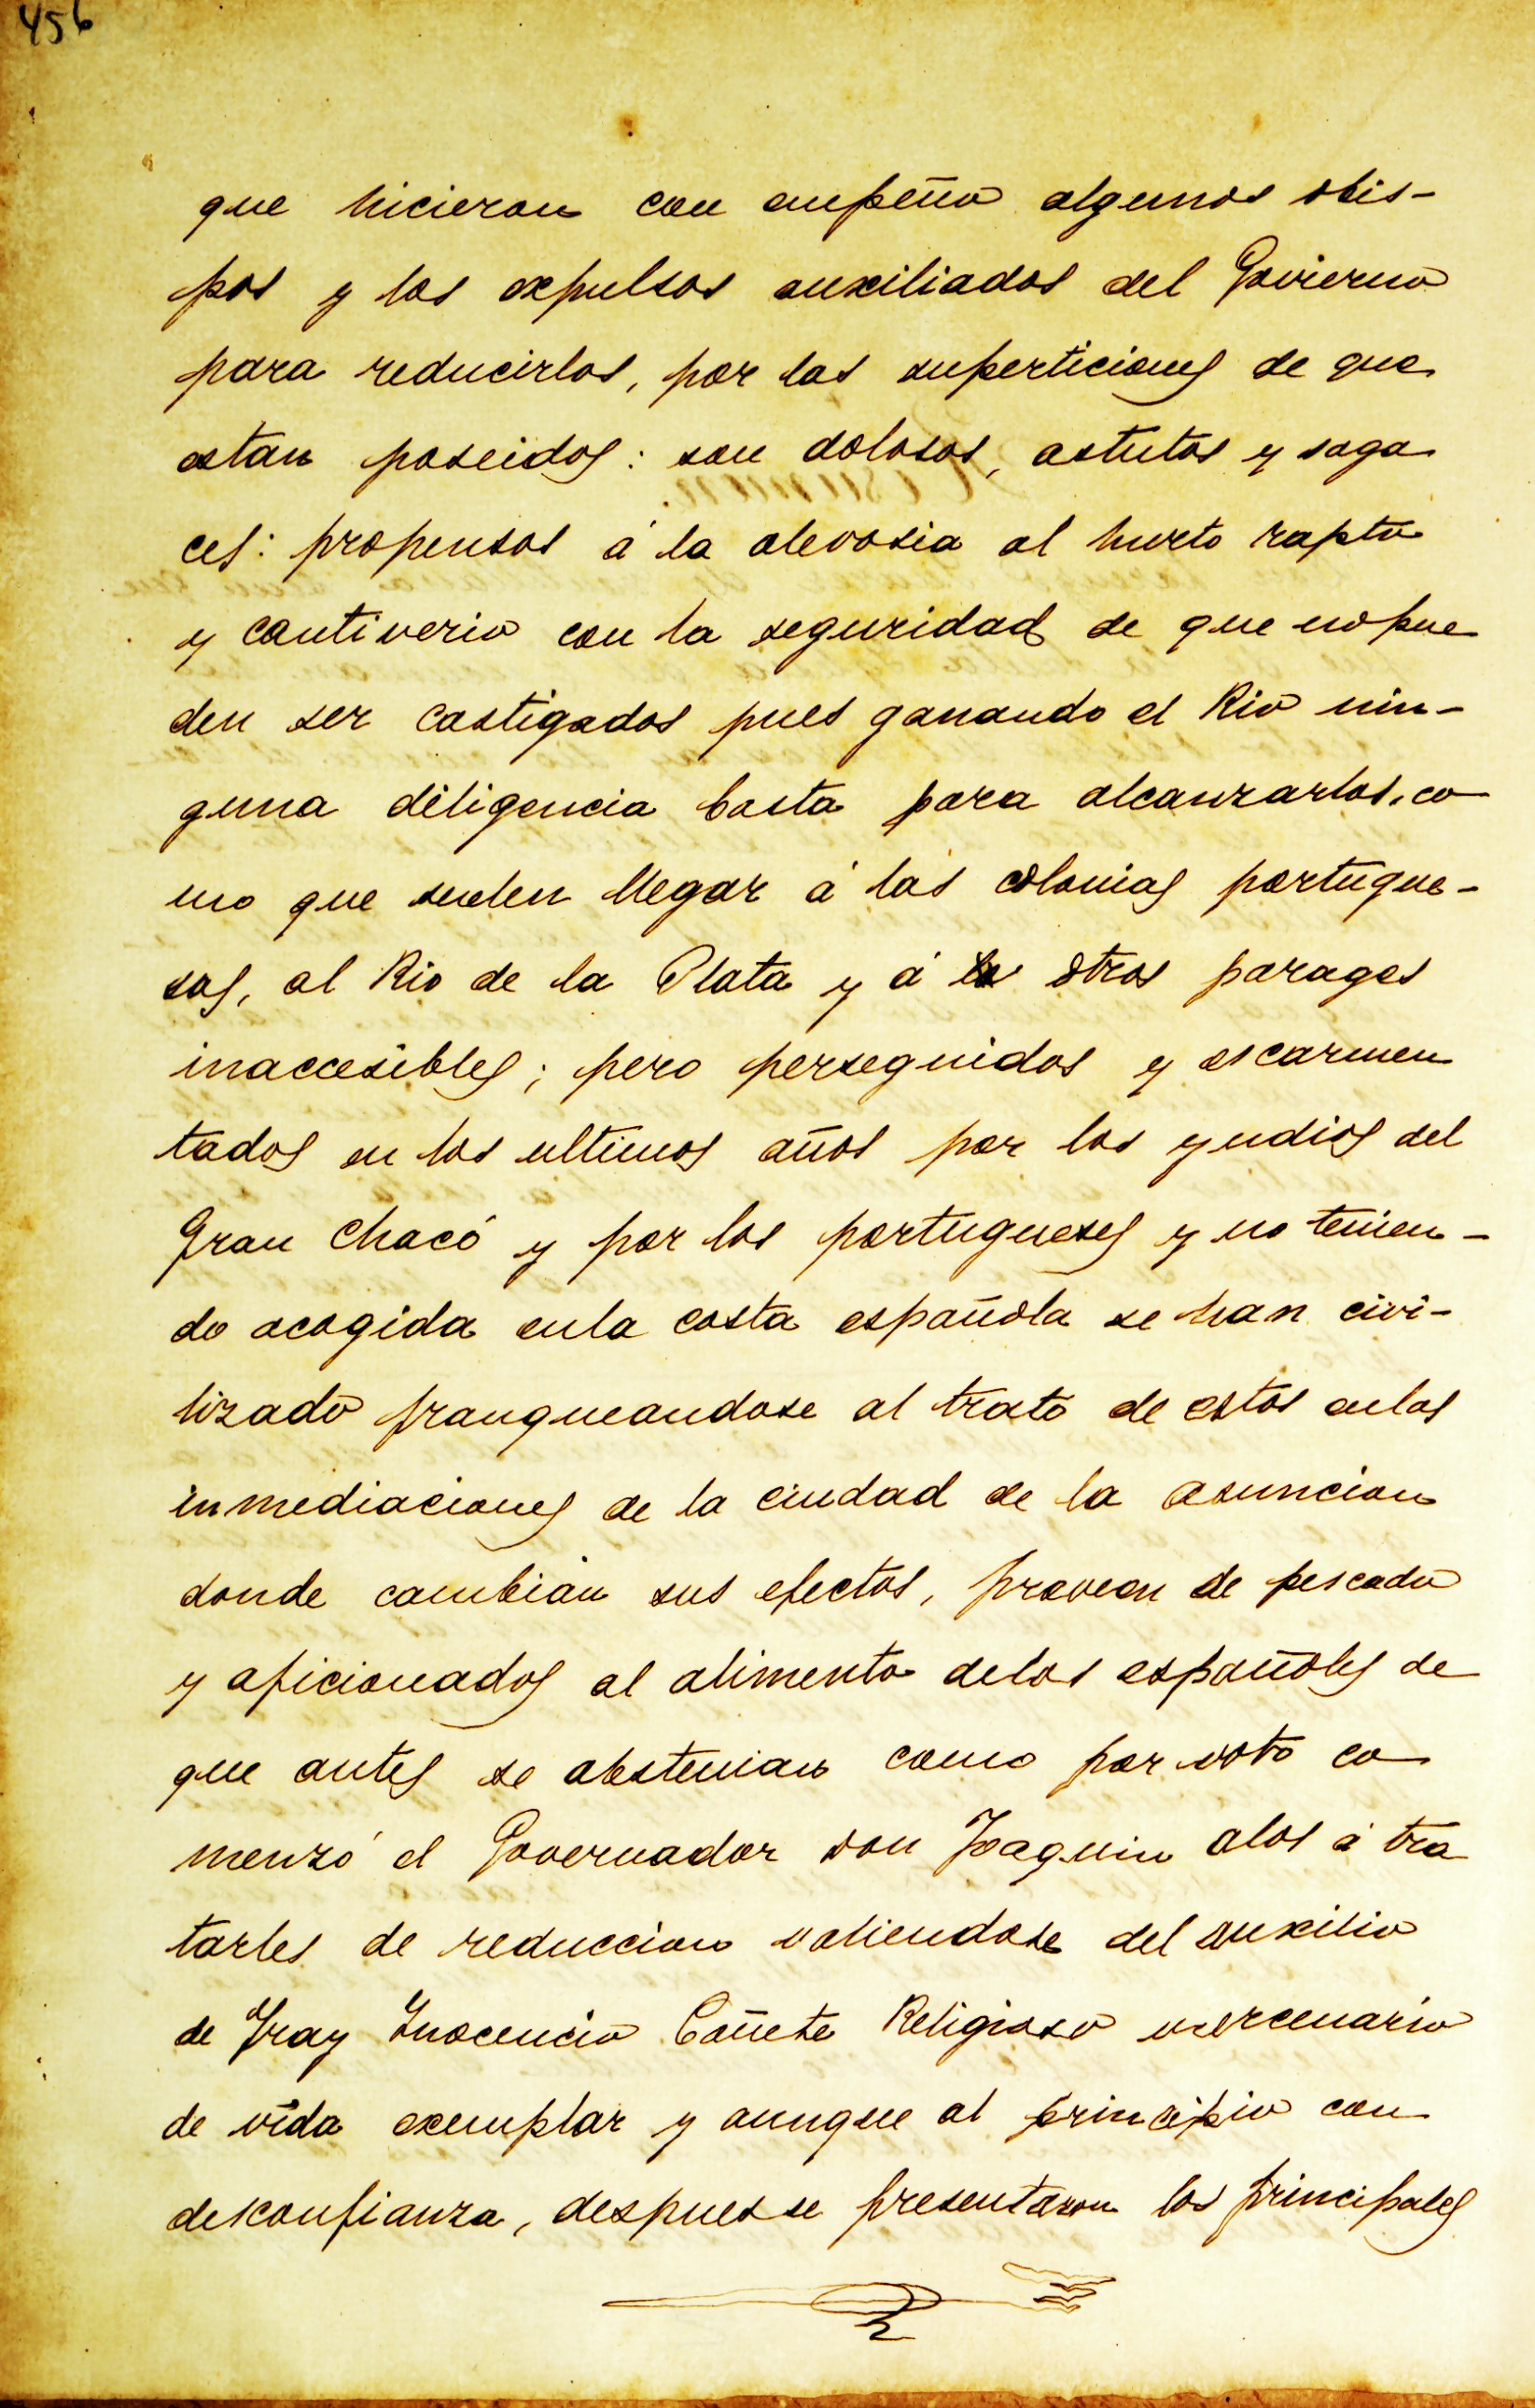 456
que hicieron con empeño algunos obis-
pos y los expulsos auxiliados del Govierno
para reducirlos, por las superticiones de que
estan poseidos: son dolosos, astutos y saga
ces: propensos á la alevosia al hurto rapto
y cautiverio con la seguridad de que no pue
den ser castigados pues ganando el Rio nin-
guna diligencia basta para alcanzarlos, co
mo que suelen llegar á las colonias portugue-
sas, al Rio de la Plata y á otros parages
inaccesibles; pero perseguidos y escarmen
tados en los ultimos años por los yndios del
Gran Chacó y por los portugueses y no tenien-
do acogida en la costa española se han civi-
lizado franqueandose al trato de estos en las
inmediaciones de la ciudad de la asuncion
donde cambian sus efectos, proveen de pescado
y aficionados al alimento de los españoles de
que antes se abstenian como por voto co
menzó el Governador don Joaquin alos á tra
tarles de reduccion valiendose del auxilio
de Fray Inocencio Cañete Religioso mercenario
de vida exemplar y aunque al principio con
desconfianza, despues se presentaron los principales